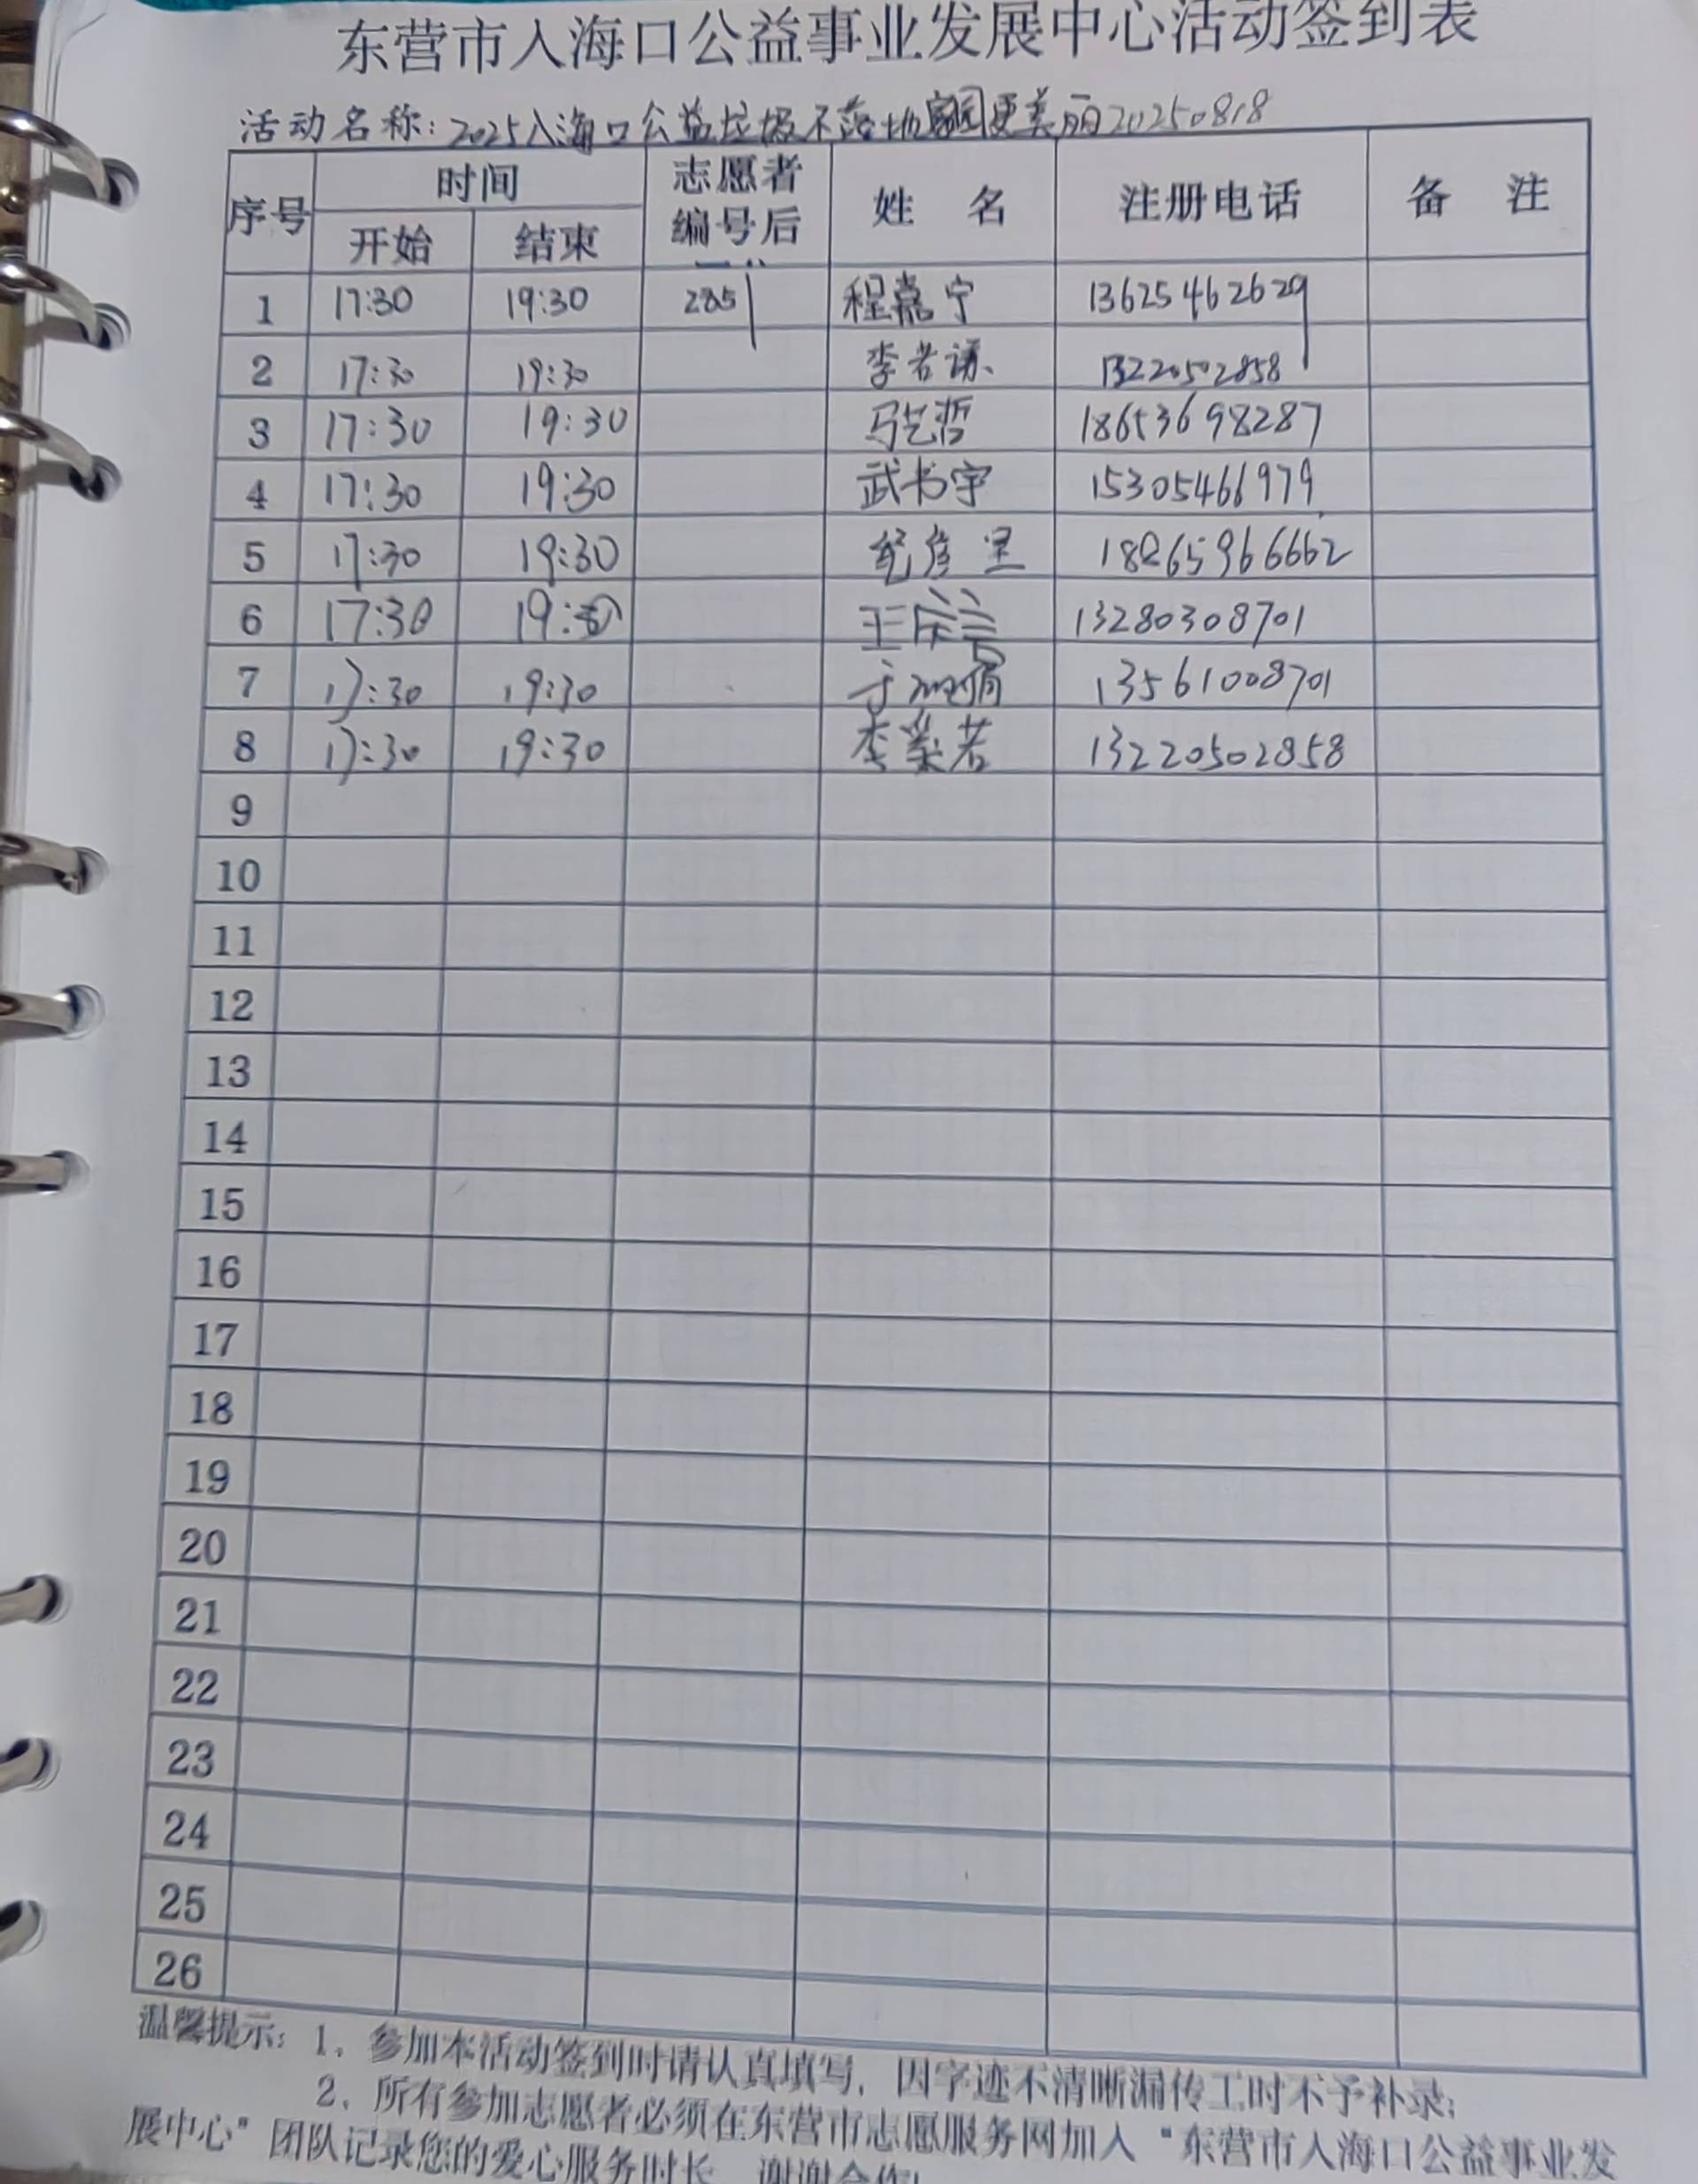 东营市入海口公益事业发展中心活动签到表
活动名称：2025入海口公益垃圾不落地家园更美丽20250818
序号 时间 志愿者编号后 姓 名 注册电话 备 注
开始 结束
1 17:30 19:30 285 程嘉宁 13625462629
2 17:30 19:30 李若谦 13220502858
3 17:30 19:30 马艺哲 18653698287
4 17:30 19:30 武书宇 15305466979
5 17:30 19:30 18865966662
6 17:30 19:30 王 13280308701
7 17:30 19:30 于 13561008701
8 17:30 19:30 李 若 13220502858
9
10
11
12
13
14
15
16
17
18
19
20
21
22
23
24
25
26
温馨提示：1、参加本活动签到时请认真填写，因字迹不清晰漏传工时不予补录；
2、所有参加志愿者必须在东营市志愿服务网加入“东营市入海口公益事业发
展中心”团队记录您的爱心服务时长，谢谢合作！